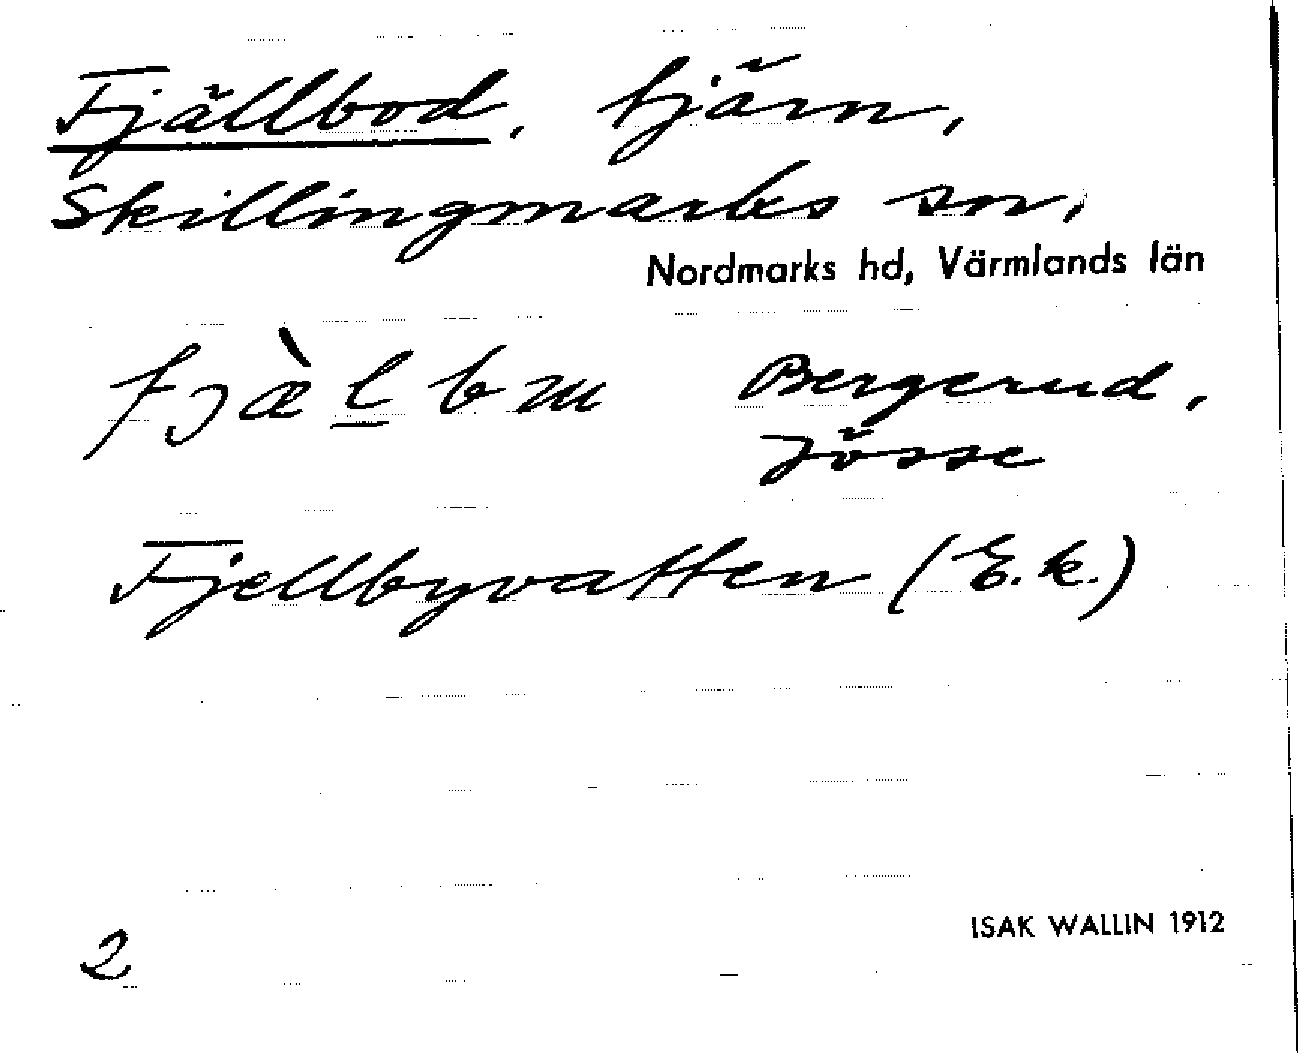 Fjällbod, tjärn,
Skillingmarks sn,
Nordmarks hd, Värmlands län
fjæ̀l̲bm Bergerud,
Jösse
Fjellbyvatten (E.k.)
2
ISAK WALLIN 1912